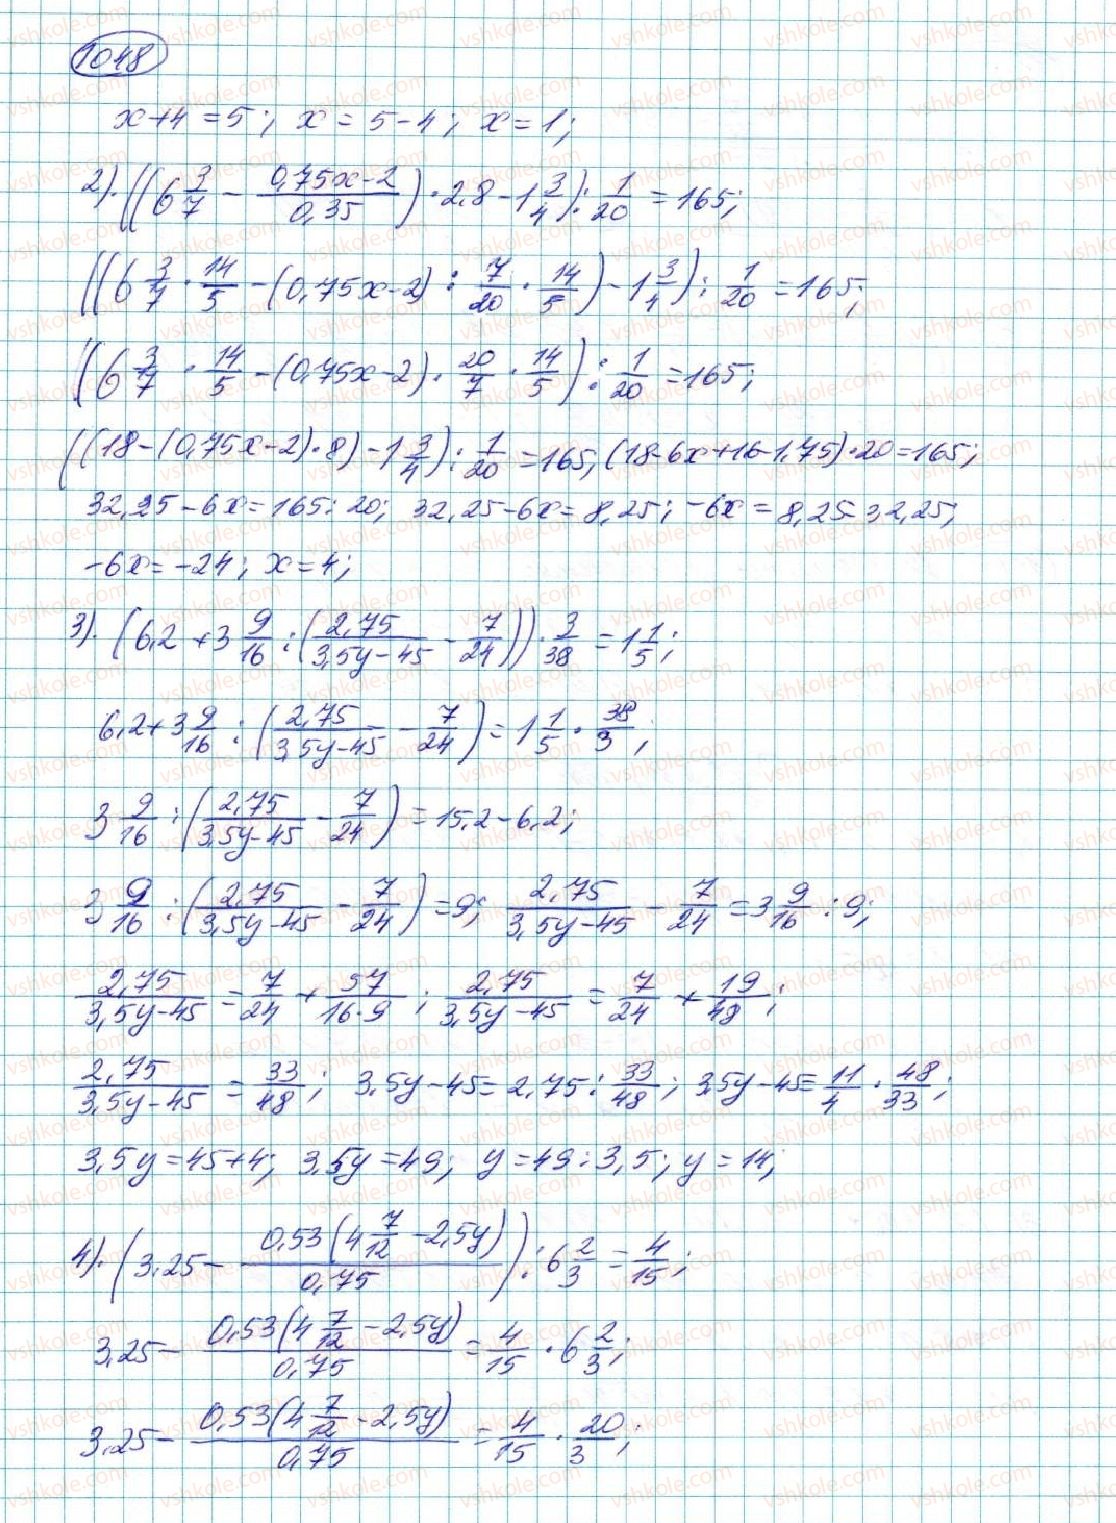 1048
x+4=5; x=5-4; x=1;
2). ((6 3/7 - (0,75x-2)/0,35) · 2,8 - 1 3/4) : 1/20 = 165;
((6 3/7 · 14/5 - (0,75x-2) : 7/20 · 14/5) - 1 3/4) : 1/20 = 165;
((6 3/7 · 14/5 - (0,75x-2) · 20/7 · 14/5) : 1/20 = 165;
((18-(0,75x-2)·8) - 1 3/4) : 1/20 = 165, (18-6x+16-1,75)·20=165;
32,25-6x=165:20; 32,25-6x=8,25; -6x=8,25-32,25;
-6x=-24; x=4;
3). (6,2 + 3 9/16 : (2,75/(3,5y-45) - 7/24)) · 3/38 = 1 1/5;
6,2 + 3 9/16 : (2,75/(3,5y-45) - 7/24) = 1 1/5 · 38/3;
3 9/16 : (2,75/(3,5y-45) - 7/24) = 15,2-6,2;
3 9/16 : (2,75/(3,5y-45) - 7/24) = 9; 2,75/(3,5y-45) - 7/24 = 3 9/16 : 9;
2,75/(3,5y-45) = 7/24 + 57/(16·9); 2,75/(3,5y-45) = 7/24 + 19/48;
2,75/(3,5y-45) = 33/48; 3,5y-45=2,75 : 33/48; 3,5y-45= 11/4 · 48/33;
3,5y=45+4; 3,5y=49; y=49:3,5; y=14;
4). (3,25 - 0,53(4 7/12 - 2,5y)/0,75) : 6 2/3 = 4/15;
3,25 - 0,53(4 7/12 - 2,5y)/0,75 = 4/15 · 6 2/3;
3,25 - 0,53(4 7/12 - 2,5y)/0,75 = 4/15 · 20/3;